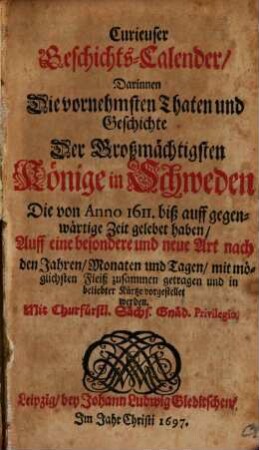 Curieuser
Geschichts-Calender/
Darinnen
Die vornehmsten Thaten und
Geschichte
Der Großmächtigsten
Könige in Schweden
Die von Anno 1611. biß auff gegen-
wärtige Zeit gelebet haben/
Auff eine besondere und neue Art nach
den Jahren/ Monaten und Tagen/ mit mög-
lichsten Fleiß zusammen getragen und in
beliebter Kürtze vorgestellet
werden.
Mit Churfürstl. Sächs. Gnäd. Privilegio.
Leipzig/ bey Johann Ludwig Gleditschen/
Im Jahr Christi 1697.